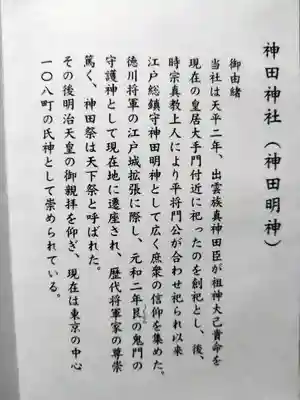 神田神社（神田明神）
御由緒
当社は天平二年、出雲族真神田臣が祖神大己貴命を
現在の皇居大手門付近に祀ったのを創祀とし、後、
時宗真教上人により平将門公が合わせ祀られ以来
江戸総鎮守神田明神として広く庶衆の信仰を集めた。
徳川将軍の江戸城拡張に際し、元和二年艮の鬼門の
守護神として現在地に遷座され、歴代将軍家の尊崇
篤く、神田祭は天下祭と呼ばれた。
その後明治天皇の御親拝を仰ぎ、現在は東京の中心
一〇八町の氏神として崇められている。